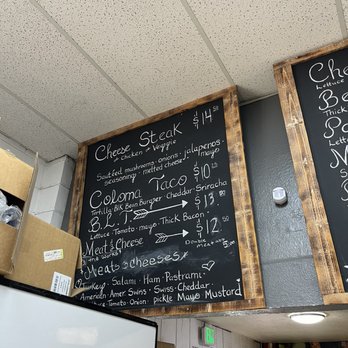 Cheese Steak $14.50
or chicken or Veggie
Sauteed mushrooms · onions · jalapenos ·
seasoning · melted cheese · mayo
Coloma Taco $10.50
Tortilla Blk Bean Burger Cheddar Sriracha
B.L.T. $13.50
Lettuce · Tomato · mayo · Thick Bacon
Meat & Cheese $12.50
the works
Double meat
Meats & cheeses
Turkey · Salami · Ham · Pastrami
American · Amer Swiss · Swiss · Cheddar
Tomato · Onion · pickle Mayo Mustard
Che
Lettuce
Be
Thick
Pa